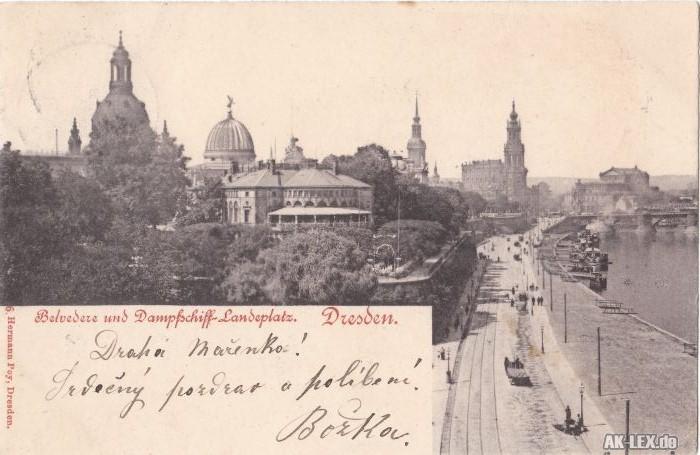 Belvedere und Dampfschiff-Landeplatz. Dresden.
Drahá Mařenko!
Srdečný pozdrav a políbení.
Božka.
6. Hermann Poy, Dresden.
AK-LEX.de